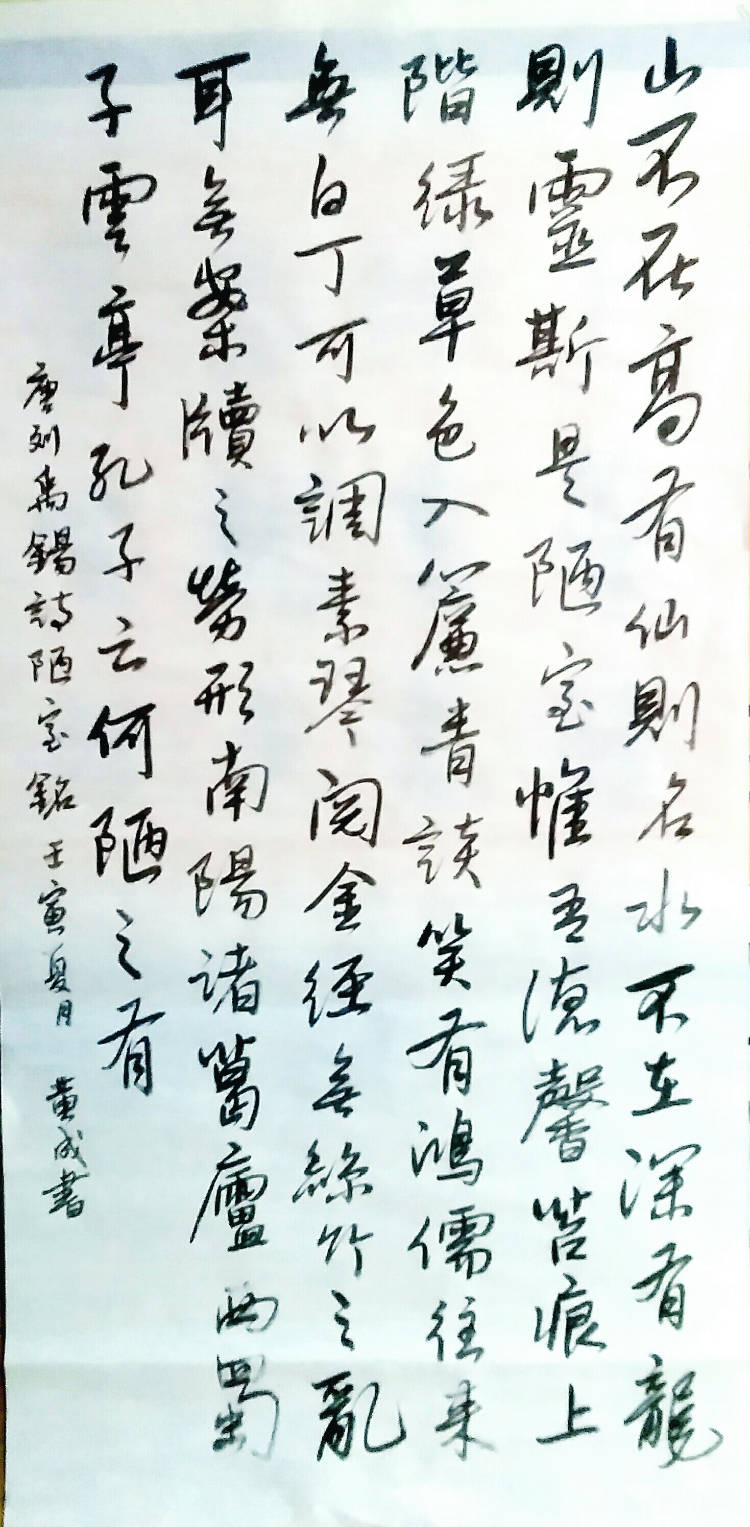 山不在高有仙則名水不在深有龍
則靈斯是陋室惟吾德馨苔痕上
階緑草色入簾青談笑有鴻儒往来
無白丁可以調素琴閲金經無絲竹之亂
耳無案牘之勞形南陽諸葛廬西蜀
子雲亭孔子云何陋之有
唐刘禹錫詩陋室銘壬寅夏月 黄成書